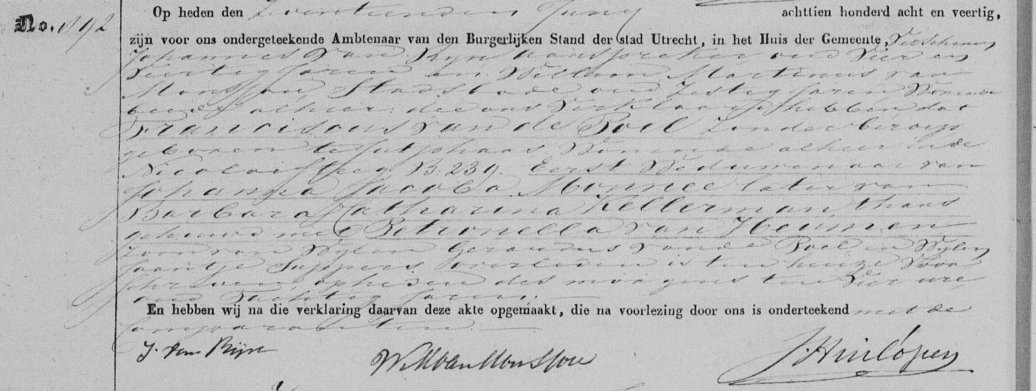 No. 1892 Op heden den Zeventienden Juny achttien honderd acht en veertig,
zijn voor ons ondergeteekende Ambtenaar van den Burgerlijken Stand der stad Utrecht, in het Huis der Gemeente, verschenen
Johannes van Rijn aanspreker oud vier en
veertig jaren en Willem Martinus van
Monsjou Stadsbode oud zestig jaren wonende
beide alhier die ons verklaard hebben dat
Franciscus van de Poel zonder beroep
geboren te Jutphaas wonende alhier in de
Nicolaassteeg B.239. Eerst Weduwenaar van
Johanna Jacoba Monnee later van
Barbara Catharina Kellerman, thans
gehuwd met Petronella van Heumen
Zoon van Wylen Gerardus van de Poel en Wylen
Jaantje Suppers overleden is ten huize voor
schreven op heden des morgens ten vier ure
oud tachtig jaren.
En hebben wij na die verklaring daarvan deze akte opgemaakt, die na voorlezing door ons is onderteekend met de
comparanten
J. van Rijn W M van Monsjou J. Hinlópen